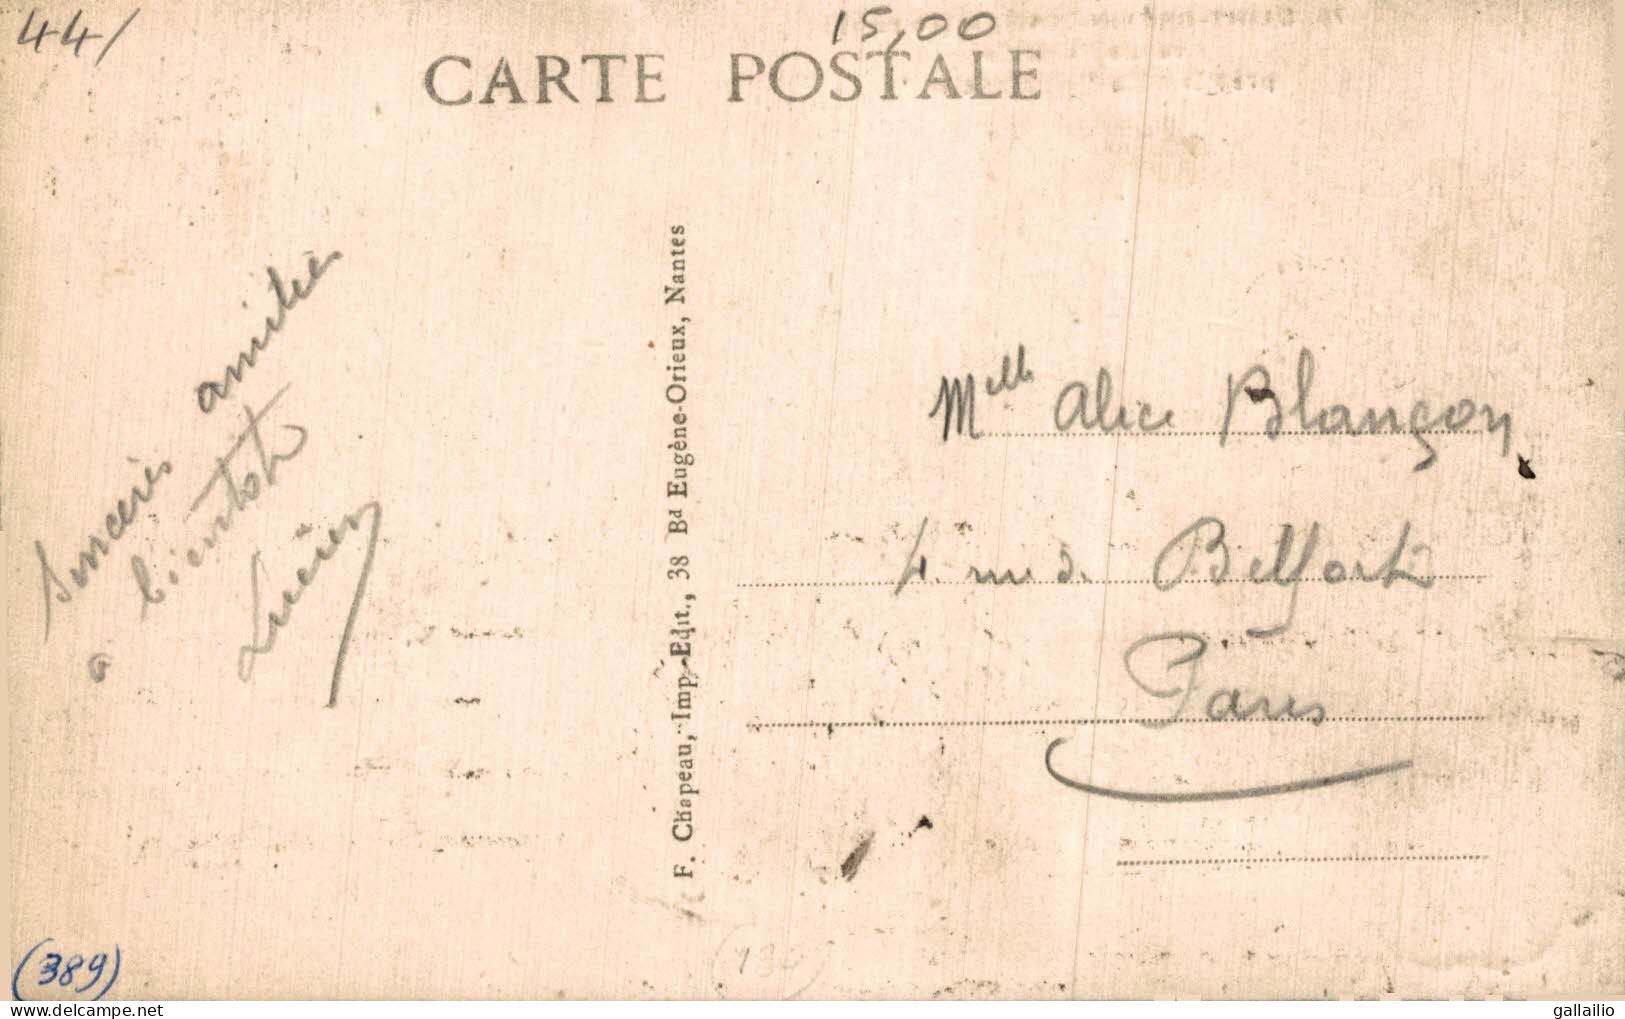 44/
15,00
CARTE POSTALE
Sincères amitiés
à bientôt
Lucien
F. Chapeau, Imp.-Edit., 38 Bd Eugène-Orieux, Nantes
Melle Alice Blançon
4 rue de Belfort
Paris
(389)
delcampe.net
gallailio